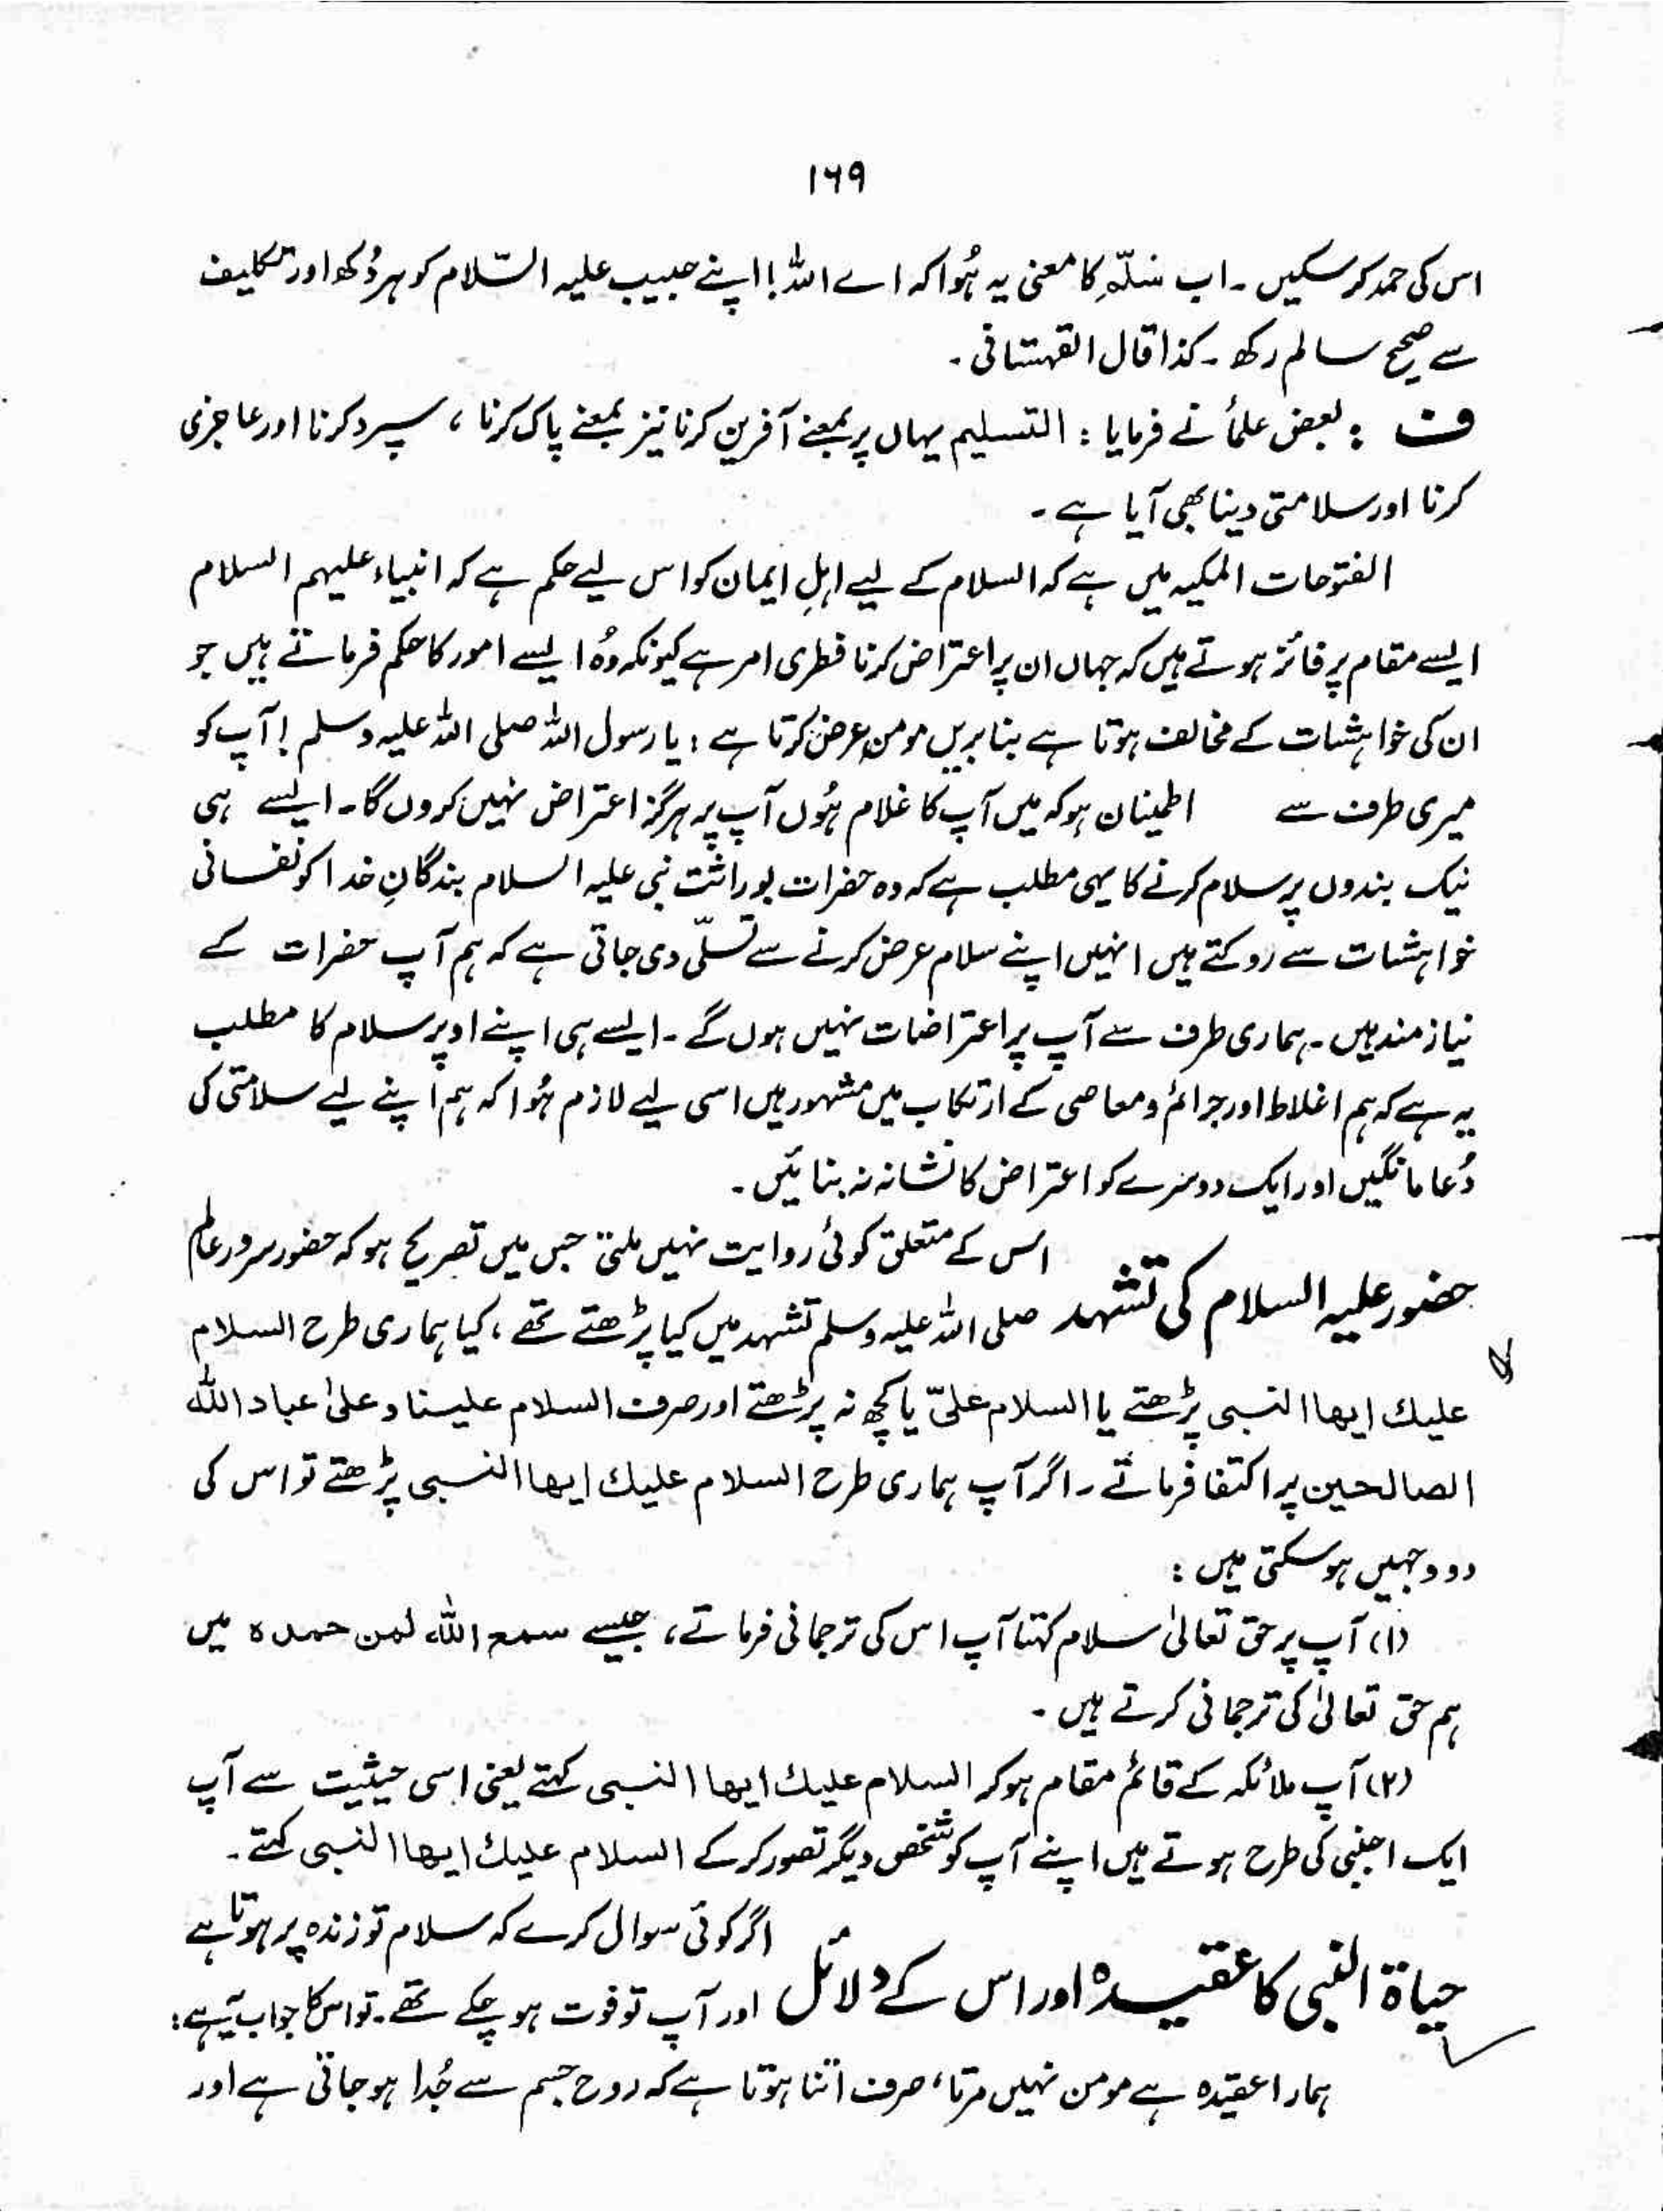 ۱۶۹
اس کی حمد کر سکیں ۔ اب سَلِّم کا معنی یہ ہُوا کہ اے اللہ! اپنے حبیب علیہ السّلام کو ہر دُکھ اور تکلیف
سے صحیح سالم رکھ ۔ کذا قال القہستانی ۔
ف : بعض علماؑ نے فرمایا : التسلیم یہاں پر بمعنے آفرین کرنا نیز بمعنے پاک کرنا ، سپرد کرنا اور عاجزی
کرنا اور سلامتی دینا بھی آیا ہے ۔
الفتوحات المکیہ میں ہے کہ السلام کے لیے اہلِ ایمان کو اس لیے حکم ہے کہ انبیاء علیہم السلام
ایسے مقام پر فائز ہوتے ہیں کہ جہاں ان پر اعتراض کرنا فطری امر ہے کیونکہ وُہ ایسے امور کا حکم فرماتے ہیں جو
ان کی خواہشات کے مخالف ہوتا ہے بنا بریں مومن عرض کرتا ہے : یا رسول اللہ صلی اللہ علیہ وسلم ! آپ کو
میری طرف سے اطمینان ہو کہ میں آپ کا غلام ہُوں آپ پر ہرگز اعتراض نہیں کروں گا ۔ ایسے ہی
نیک بندوں پر سلام کرنے کا یہی مطلب ہے کہ وہ حضرات بوراثت نبی علیہ السلام بندگانِ خدا کو نفسانی
خواہشات سے روکتے ہیں انہیں اپنے سلام عرض کرنے سے تسلّی دی جاتی ہے کہ ہم آپ حضرات کے
نیازمند ہیں ۔ ہماری طرف سے آپ پر اعتراضات نہیں ہوں گے ۔ ایسے ہی اپنے اوپر سلام کا مطلب
یہ ہے کہ ہم اغلاط اور جرائم و معاصی کے ارتکاب میں مشہور ہیں اسی لیے لازم ہُوا کہ ہم اپنے لیے سلامتی کی
دُعا مانگیں اور ایک دوسرے کو اعتراض کا نشانہ نہ بنائیں ۔
حضور علیہ السلام کی تشہد
اس کے متعلق کوئی روایت نہیں ملتی جس میں تصریح ہو کہ حضور سرور عالم
صلی اللہ علیہ وسلم تشہد میں کیا پڑھتے تھے ، کیا ہماری طرح السلام
علیك ایھا النبی پڑھتے یا السلام علیّ یا کچھ نہ پڑھتے اور صرف السلام علینا و علیٰ عباد اللہ
الصالحین پر اکتفا فرماتے ۔ اگر آپ ہماری طرح السلام علیك ایھا النبی پڑھتے تو اس کی
دو وجہیں ہو سکتی ہیں :
(۱) آپ پر حق تعالیٰ سلام کہتا آپ اس کی ترجمانی فرماتے ، جیسے سمع اللہ لمن حمدہ میں
ہم حق تعالیٰ کی ترجمانی کرتے ہیں ۔
(۲) آپ ملائکہ کے قائم مقام ہو کر السلام علیك ایھا النبی کہتے یعنی اسی حیثیت سے آپ
ایک اجنبی کی طرح ہوتے ہیں اپنے آپ کو شخص دیگر تصور کر کے السلام علیك ایھا النبی کہتے ۔
حیاۃ النبی کا عقیدہ اور اس کے دلائل
اگر کوئی سوال کرے کہ سلام تو زندہ پر ہوتا ہے
اور آپ تو فوت ہو چکے تھے ۔ تو اس کا جواب یہ ہے :
ہمارا عقیدہ ہے مومن نہیں مرتا ، صرف اتنا ہوتا ہے کہ روح جسم سے جُدا ہو جاتی ہے اور